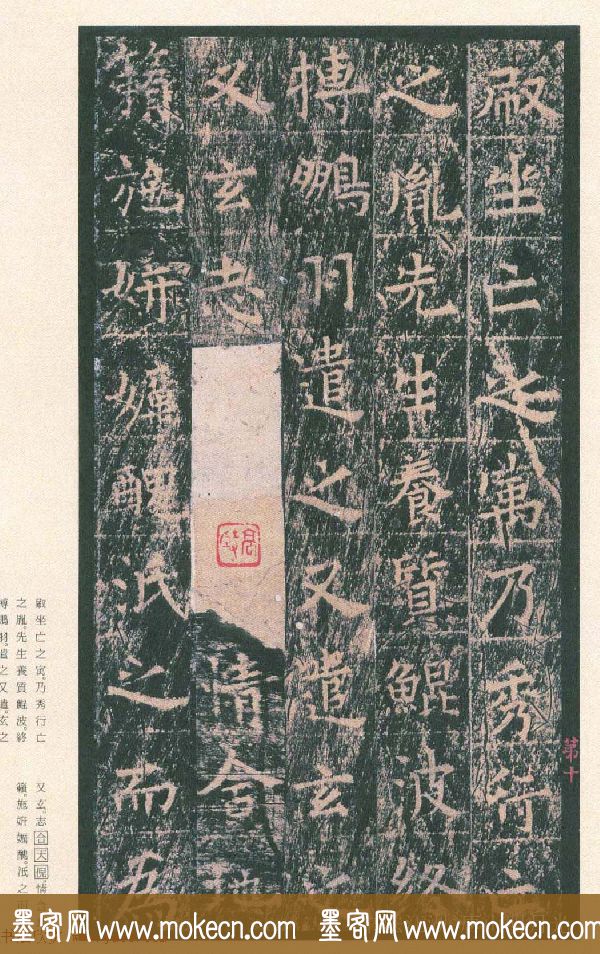 坐亡之寓乃秀行亡
之胤先生養質鯤波終
搏鵬羽遣之又遣玄之
又玄志 情合
籟施妍 醜泯之而為
第十
坐亡之寓。乃秀行亡
之胤。先生養質鯤波。終
搏鵬羽。遣之又遣。玄之
又玄。志合天倪。情
籟。施妍 醜。泯之
墨客网 www.mokecn.com 墨客网 www.mokecn.com